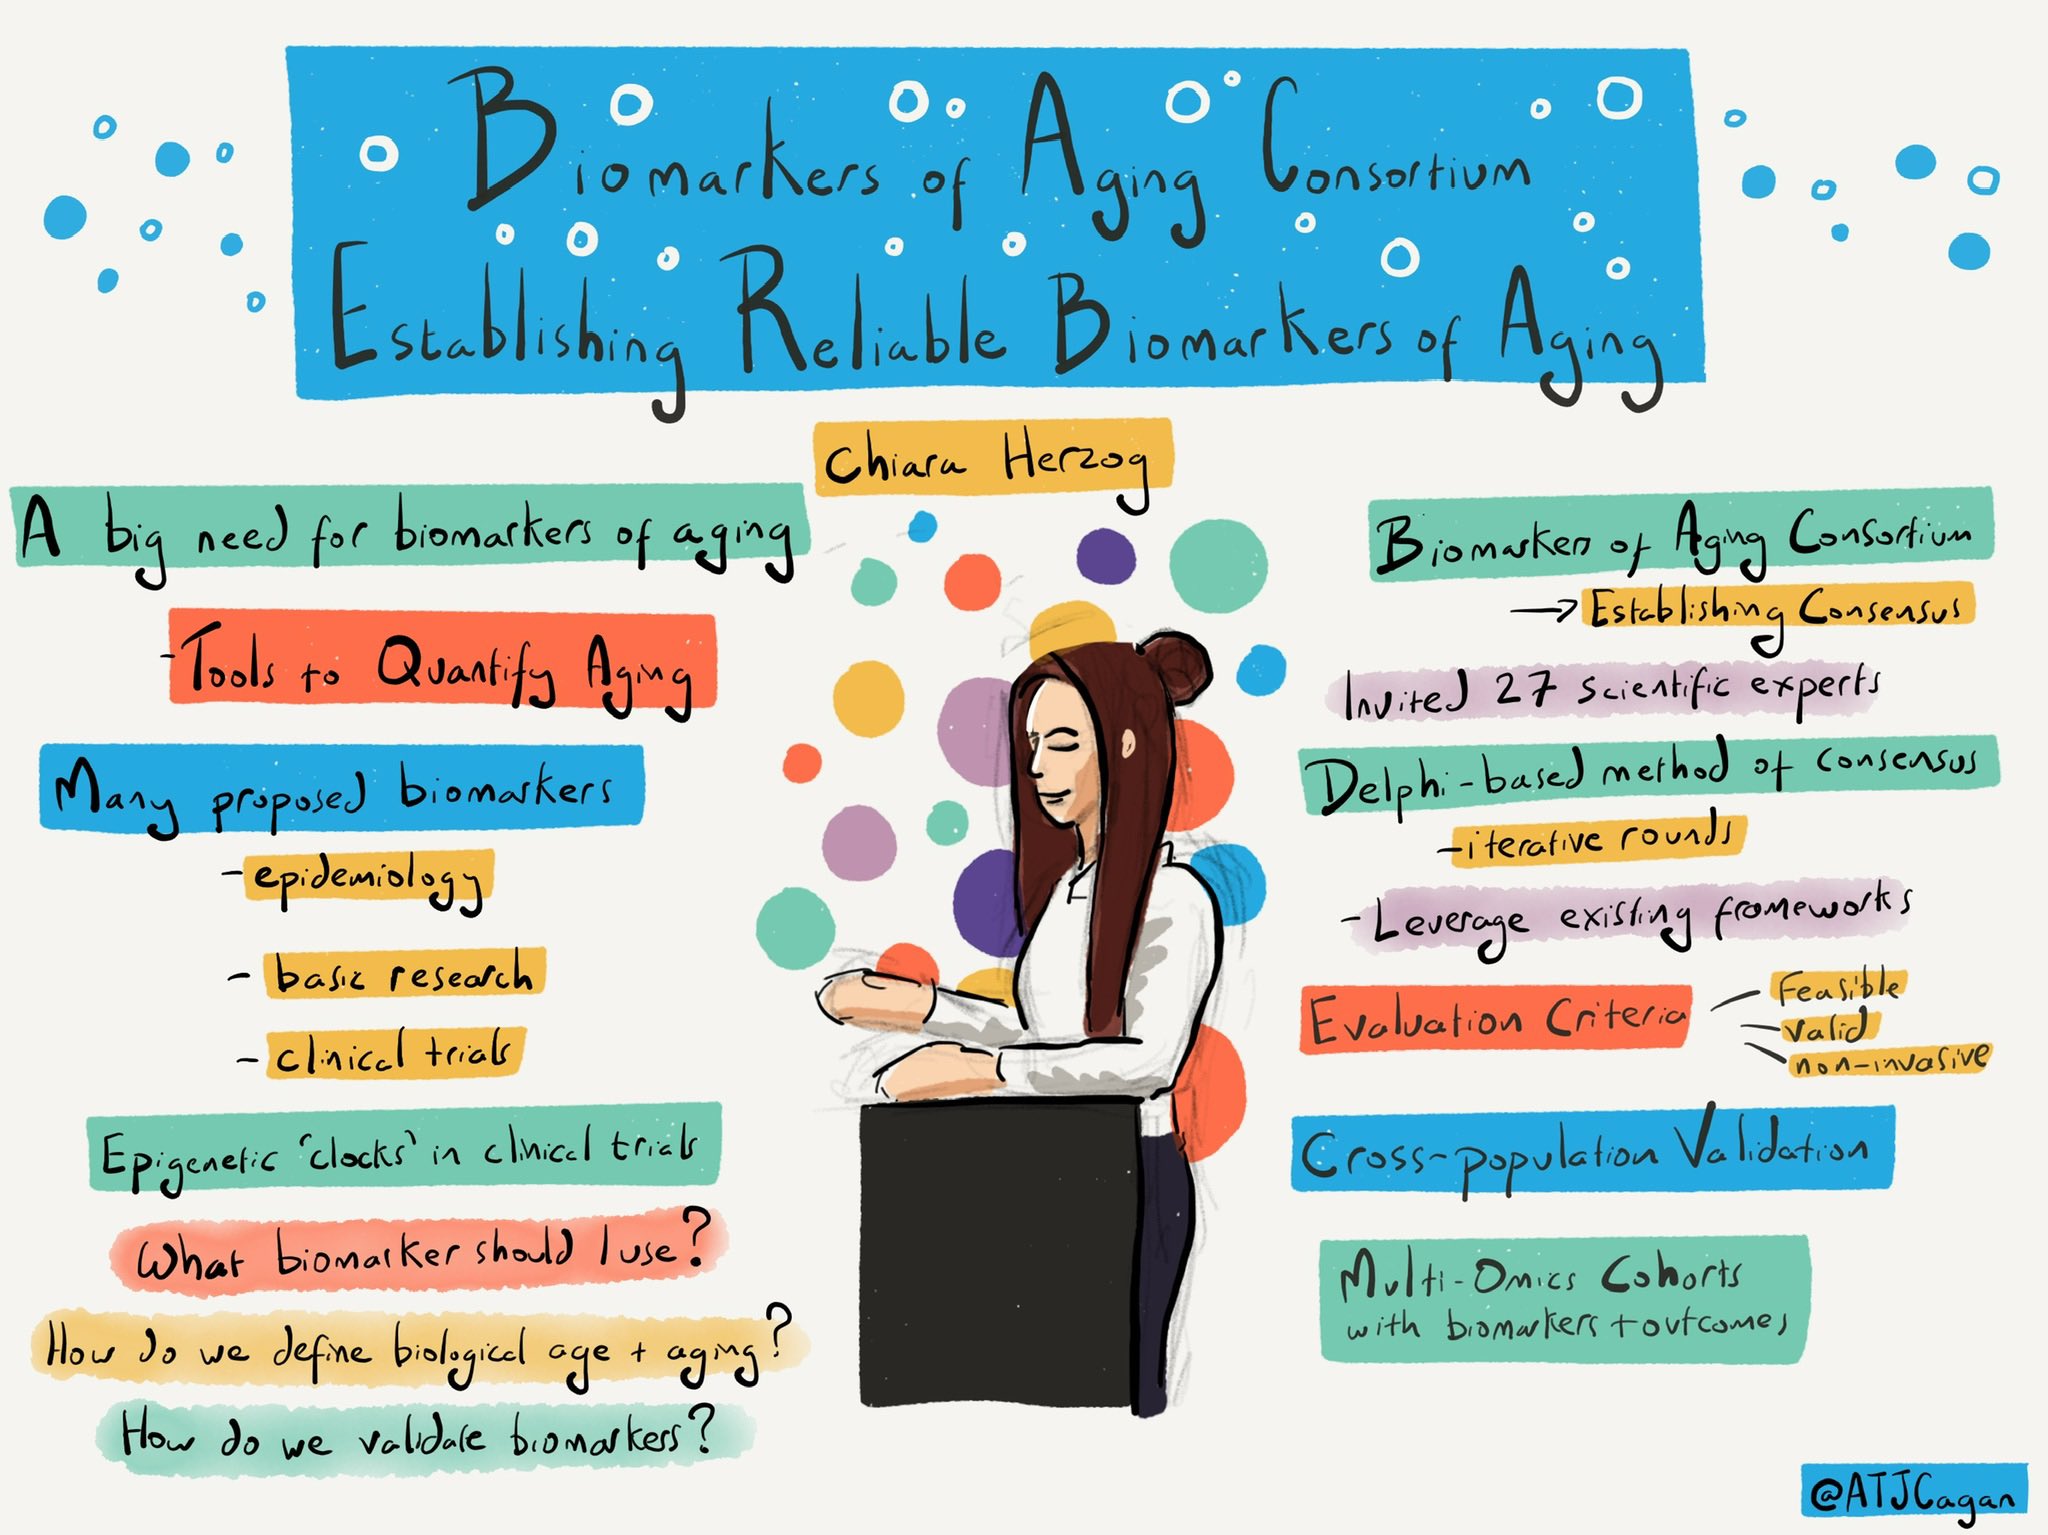 Biomarkers of Aging Consortium
Establishing Reliable Biomarkers of Aging
Chiara Herzog
A big need for biomarkers of aging
- Tools to Quantify Aging
Many proposed biomarkers
- epidemiology
- basic research
- clinical trials
Epigenetic 'clocks' in clinical trials
What biomarker should I use?
How do we define biological age + aging?
How do we validate biomarkers?
Biomarkers of Aging Consortium
→ Establishing Consensus
Invited 27 scientific experts
Delphi-based method of consensus
- iterative rounds
- Leverage existing frameworks
Evaluation Criteria
Feasible
valid
non-invasive
Cross-population Validation
Multi-Omics Cohorts
with biomarkers + outcomes
@ATJCagan